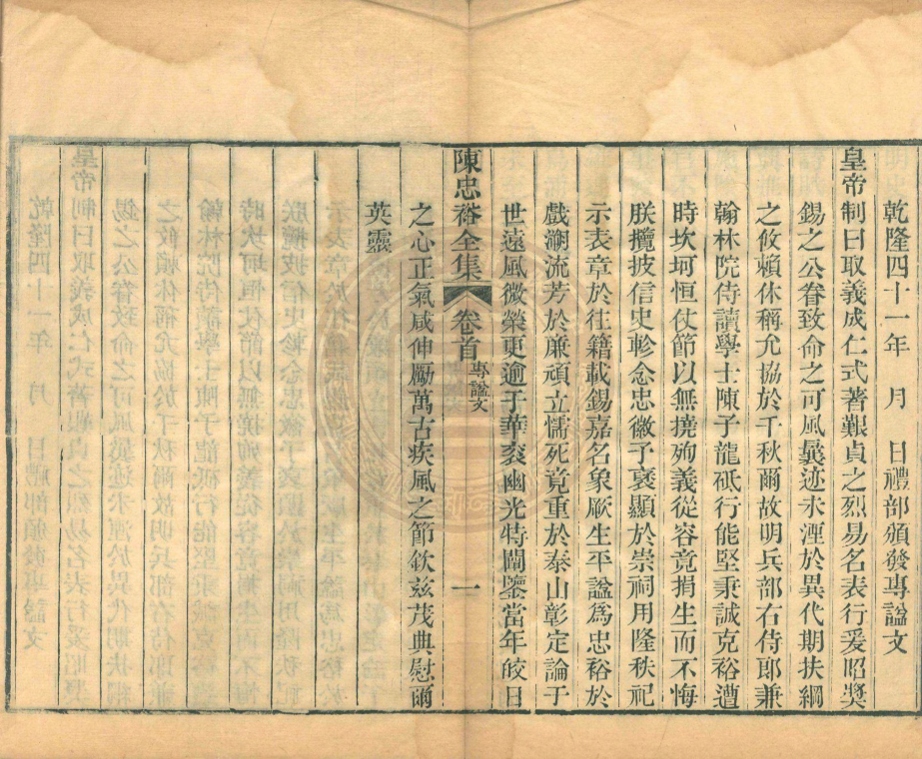 乾隆四十一年　月　日禮部頒發專諡文
皇帝制曰取義成仁式著艱貞之烈易名表行爰昭獎
錫之公眷致命之可風曩迹未湮於異代期扶綱
之攸賴休稱允協於千秋爾故明兵部右侍郎兼
翰林院侍讀學士陳子龍砥行能堅秉誠克裕遭
時坎坷恒仗節以無撓殉義從容竟捐生而不悔
朕攬披信史軫念忠徽予褒顯於崇祠用隆秩祀
示表章於往籍載錫嘉名象厥生平諡爲忠裕於
戲溯流芳於廉頑立懦死竟重於泰山彰定論于
世遠風微榮更逾于華衮幽光特闡鑒當年皎日
陳忠裕全集　卷首　專諡文　一
之心正氣咸伸勵萬古疾風之節欽兹茂典慰爾
英靈